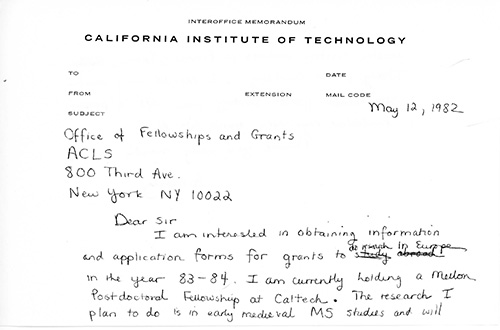 INTEROFFICE MEMORANDUM
CALIFORNIA INSTITUTE OF TECHNOLOGY
TO DATE
FROM EXTENSION MAIL CODE
May 12, 1982
SUBJECT
Office of Fellowships and Grants
ACLS
800 Third Ave.
New York NY 10022
Dear Sir
I am interested in obtaining information
do research in Europe
and application forms for grants to study abroad
in the year 83-84. I am currently holding a Mellon
Postdoctoral Fellowship at Caltech. The research I
plan to do is in early medieval MS studies and will